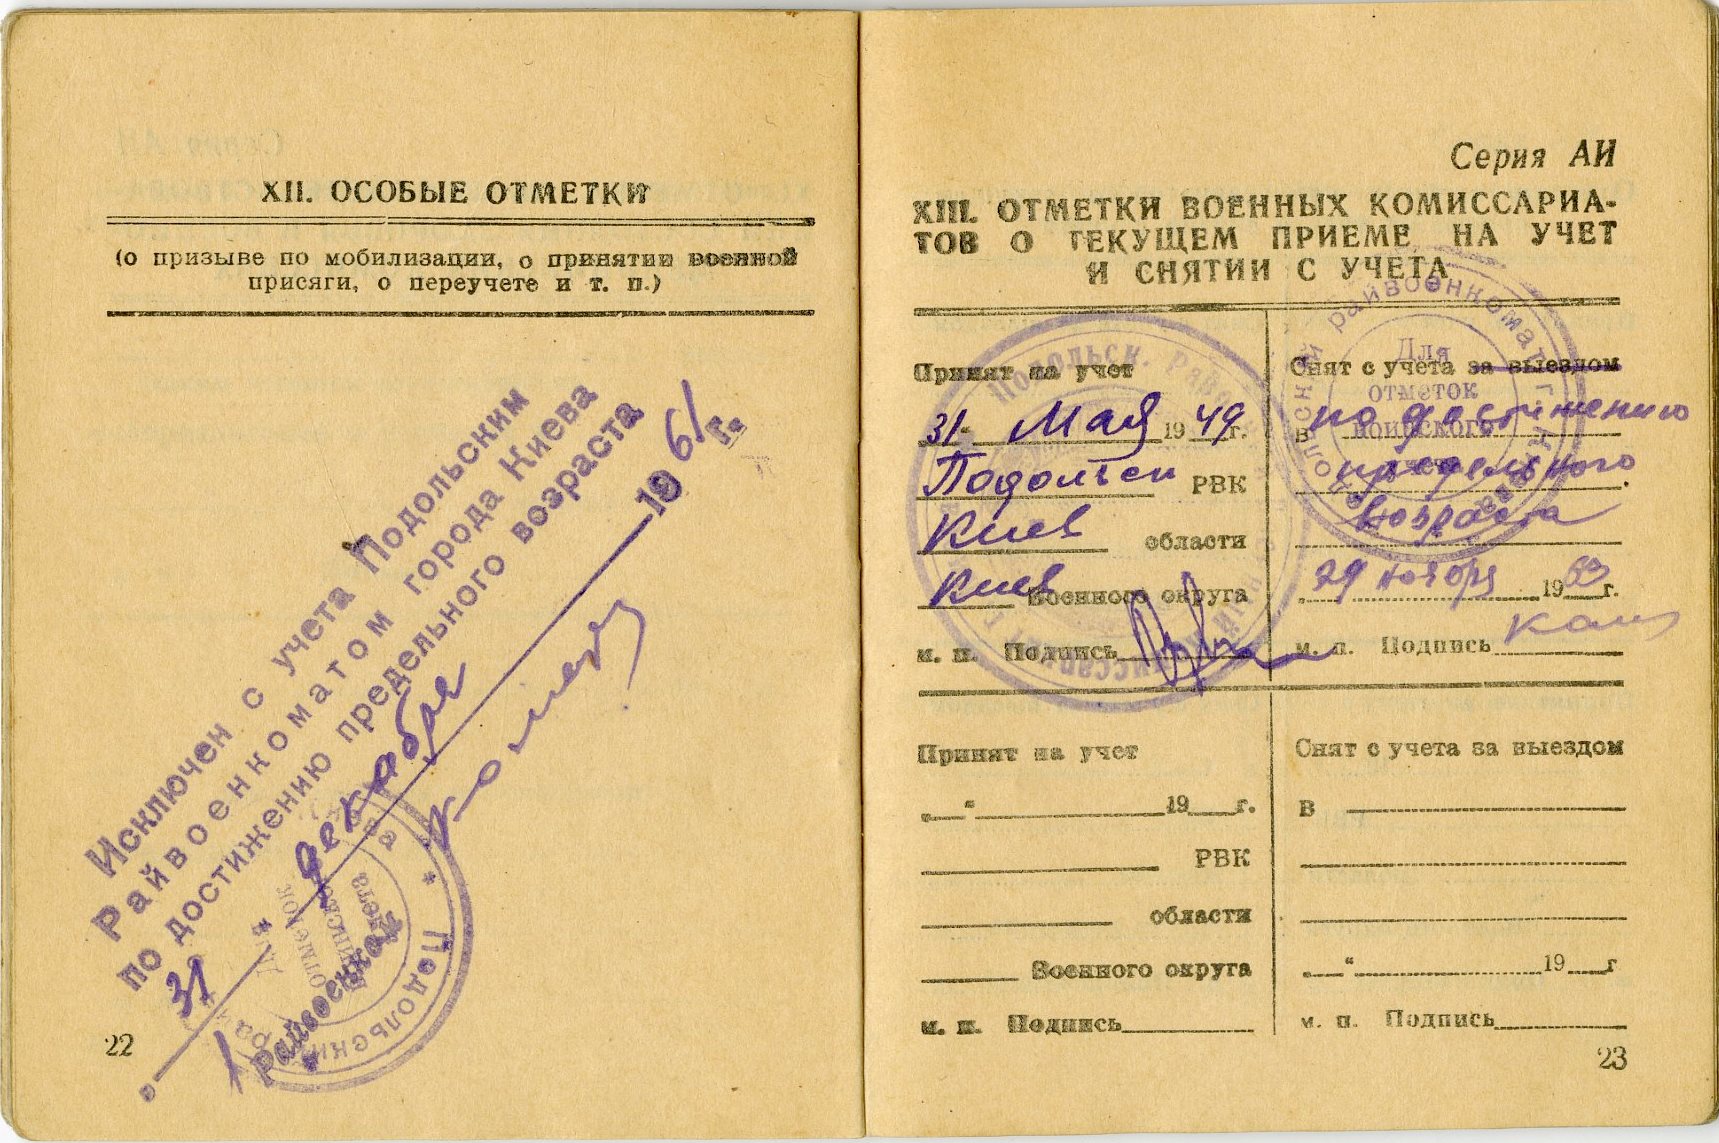 XII. ОСОБЫЕ ОТМЕТКИ
(о призыве по мобилизации, о принятии военной
присяги, о переучете и т. п.)
Исключен с учета Подольским
Райвоенкоматом города Киева
по достижению предельного возраста
31 декабря 1961 г.
Райвоенком
Для
отметок
воинского
учета
Подольский
22
Серия АИ
XIII. ОТМЕТКИ ВОЕННЫХ КОМИССАРИА-
ТОВ О ТЕКУЩЕМ ПРИЕМЕ НА УЧЕТ
И СНЯТИИ С УЧЕТА
Принят на учет
31 Мая 1949 г.
Подольск РВК
Киев области
Киев Военного округа
м. п. Подпись
Подольск.
Снят с учета за выездом
в по достижению
предельного
возраста
29 ноября 19 г.
м. п. Подпись
райвоенкомат г. Киева
Для
отметок
воинского
учета
Принят на учет
„ “ 19 г.
РВК
области
Военного округа
м. п. Подпись
Снят с учета за выездом
в
„ “ 19 г
м. п. Подпись
23